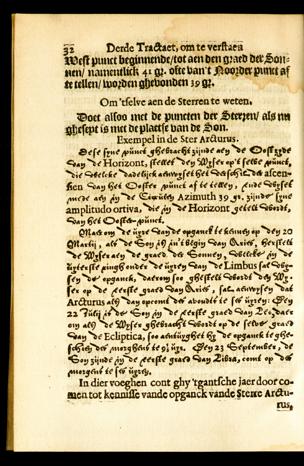 32 Derde Tractaet, om te verstaen
West punct beginnende/tot aen den graed der Son-
nen/ namentlick 41 gr. ofte van't Noorder punct af
te tellen/ worden ghevonden 39 gr.
Om 'tselve aen de Sterren te weten.
Doet alsoo met de puncten der Sterren/ als nu
ghesept is met de plaetse van de Son.
Exempel in de Ster Arcturus.
Dese syne punct ghebracht zijnde aen de Oostzyde
van de Horizont, stellet den Wyser op 't selve punct,
die welcke dadelijck aenwyset het
van het Oosten punct af te tellen, ende wyset
mede aen in de Azimuth 39 gr. zijnde syne
amplitudo ortiva, die in de Horizont getelt wordt,
van het Oosten-punct.
Maer om de ure van de opganck te kennen op den 20
Martij, als de Son is in't begin van Aries, herstelt
de Wyser aen de graed der Sonnen, welcke in de
uyterste ringh onder de uyren van de Limbus sal
sen de opganck, daerom soo ghestelt wordt de Wy-
ser op de eerste graed van Aries, sal aenwysen dat
Arcturus als dan opcomt des avondts te ses uyren: Den
22 Julij is de Son in de eerste graed van Leo, daer
om als de Wyser ghebracht wordt op de selve graed
van de Ecliptica, soo hy de opganck te ghe-
schieden des morghens te 9½ ure. Den 23 September, de
Son zijnde in de eerste graed van Libra, comt op des
morgens te ses uyren.
In dier voeghen cont ghy 'tgantsche jaer door co-
men tot kennisse vande opganck vande Sterre Arctu-
rus,